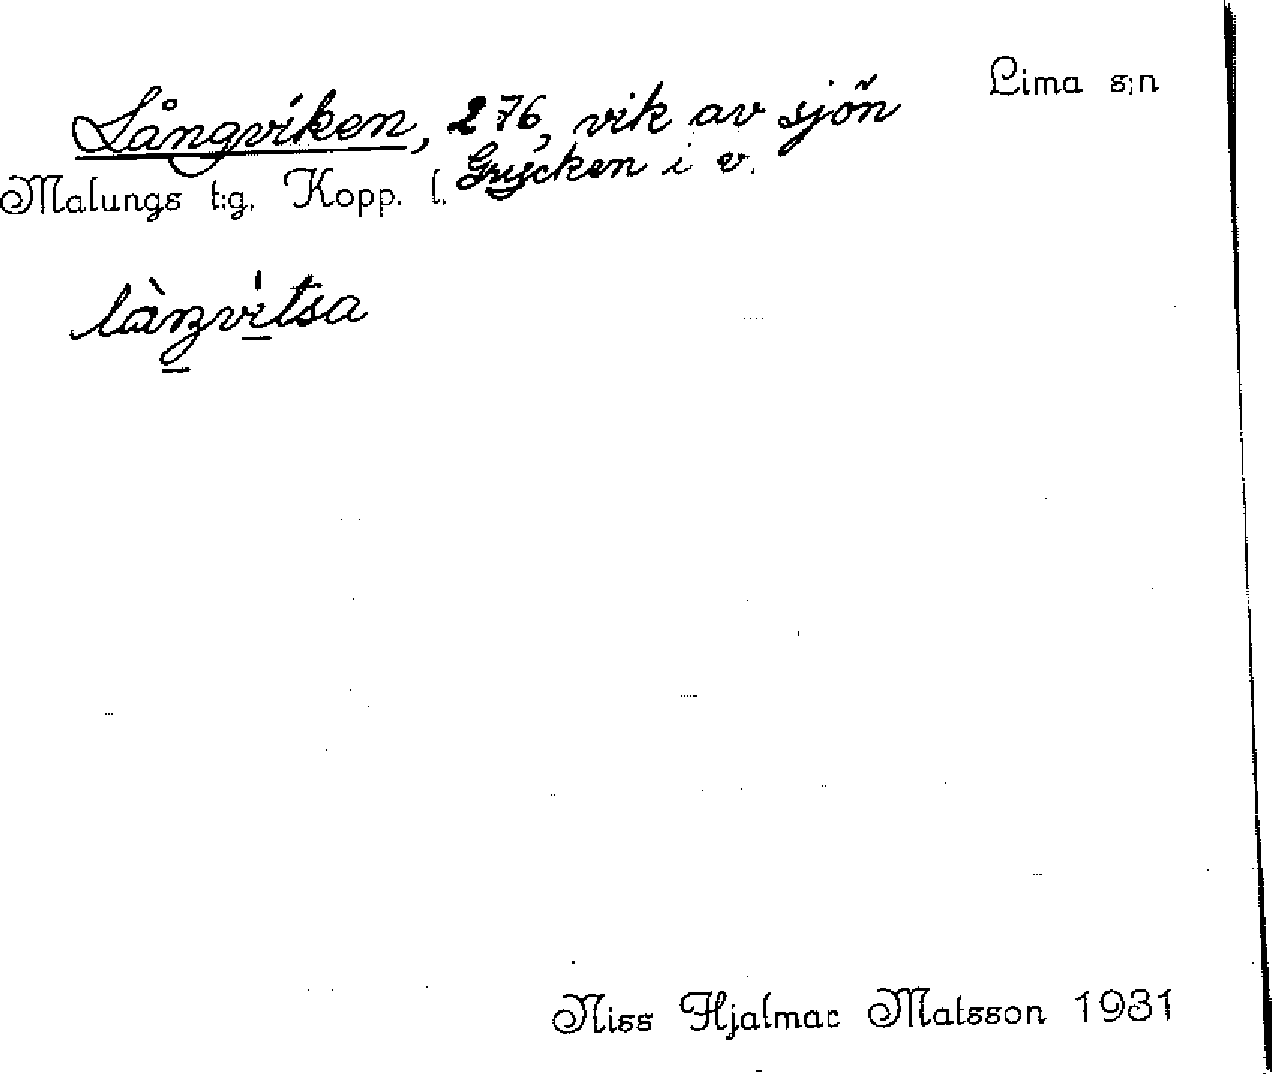 Lima s:n
Långviken, 276, vik av sjön
Grycken i v.
Malungs t:g. Kopp. l.
làŋvitsa
Niss Hjalmar Matsson 1931